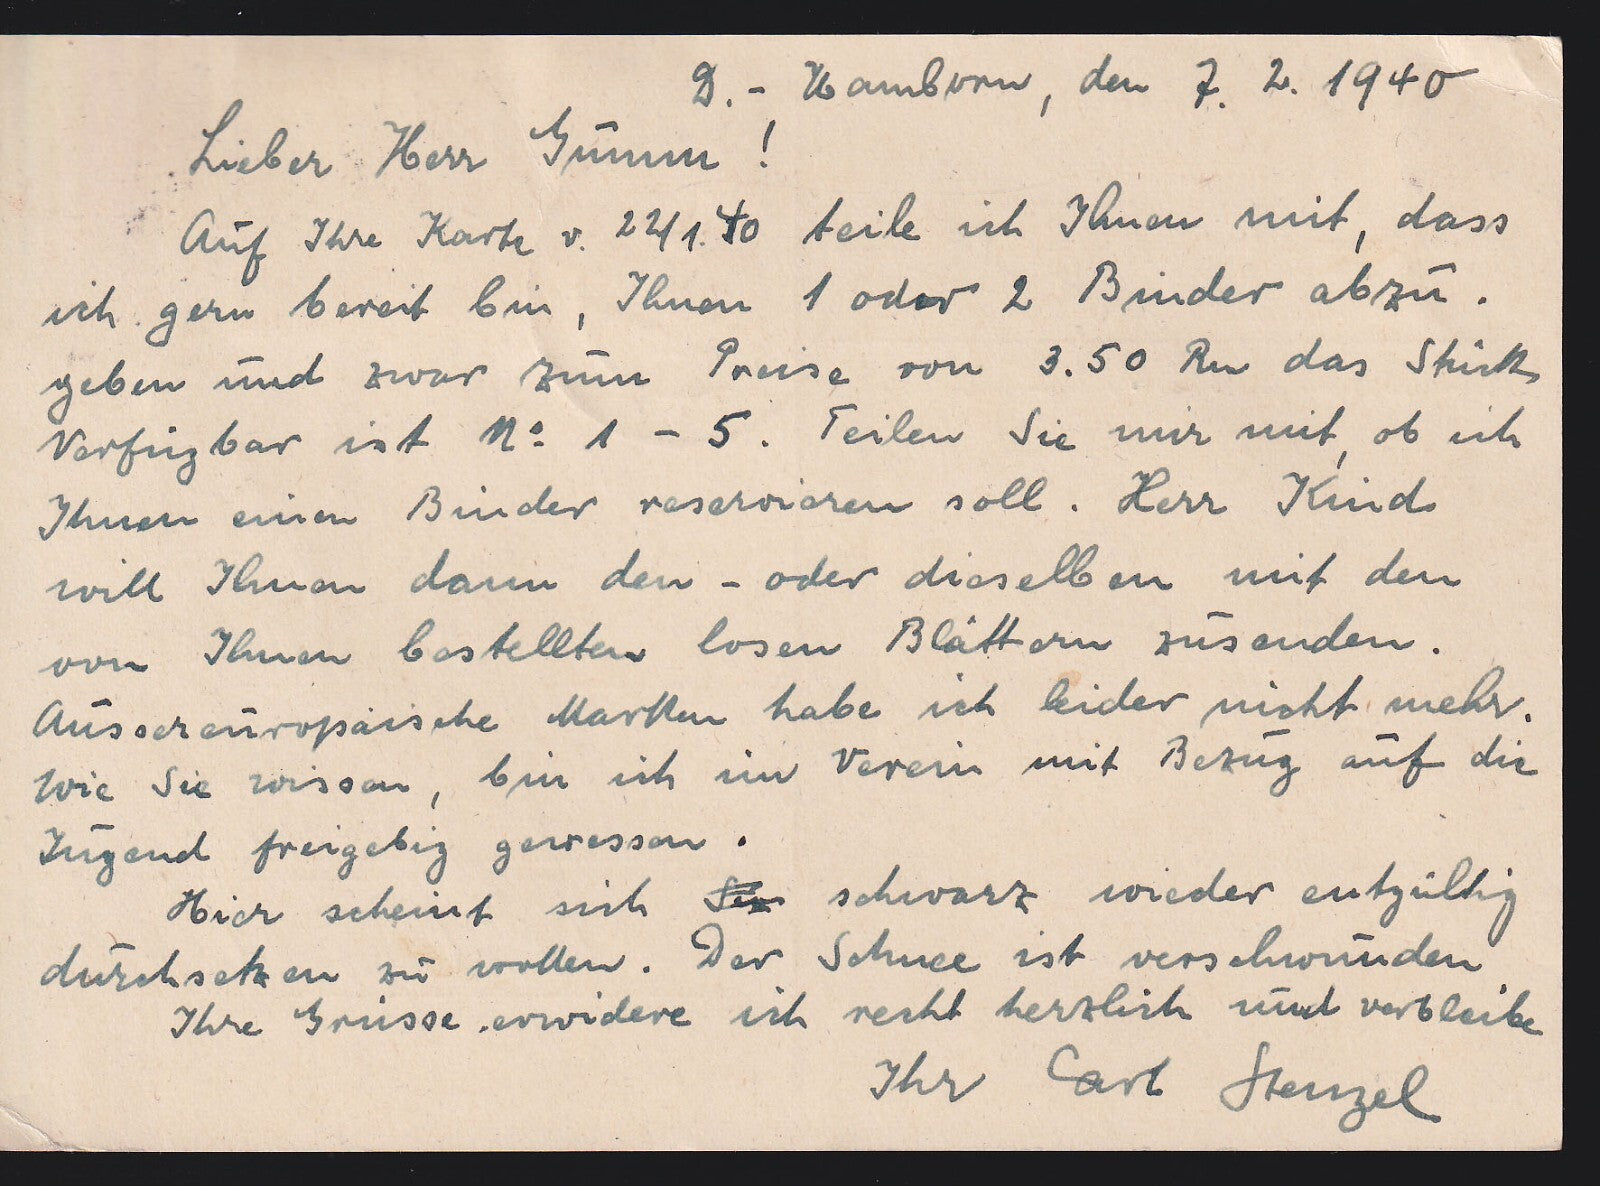 D.- Hamborn, den 7. 2. 1940
Lieber Herr Gümm!
Auf Ihre Karte v. 22/1.40 teile ich Ihnen mit, dass
ich gern bereit bin, Ihnen 1 oder 2 Binder abzu.
geben und zwar zum Preise von 3.50 Rm das Stück.
Verfügbar ist No. 1 - 5. Teilen Sie mir mit, ob ich
Ihnen einen Binder reservieren soll. Herr Kind
will Ihnen dann den - oder dieselben mit den
von Ihnen bestellten losen Blättern zusenden.
Aussereuropäische Marken habe ich leider nicht mehr.
Wie Sie wissen, bin ich im Verein mit Bezug auf die
Jugend freigebig gewessen.
Hier scheint sich schwarz wieder entgültig
durchsetzen zu wollen. Der Schnee ist verschwunden
Ihre Grüsse erwidere ich recht herzlich und verbleibe
Ihr Carl Stenzel